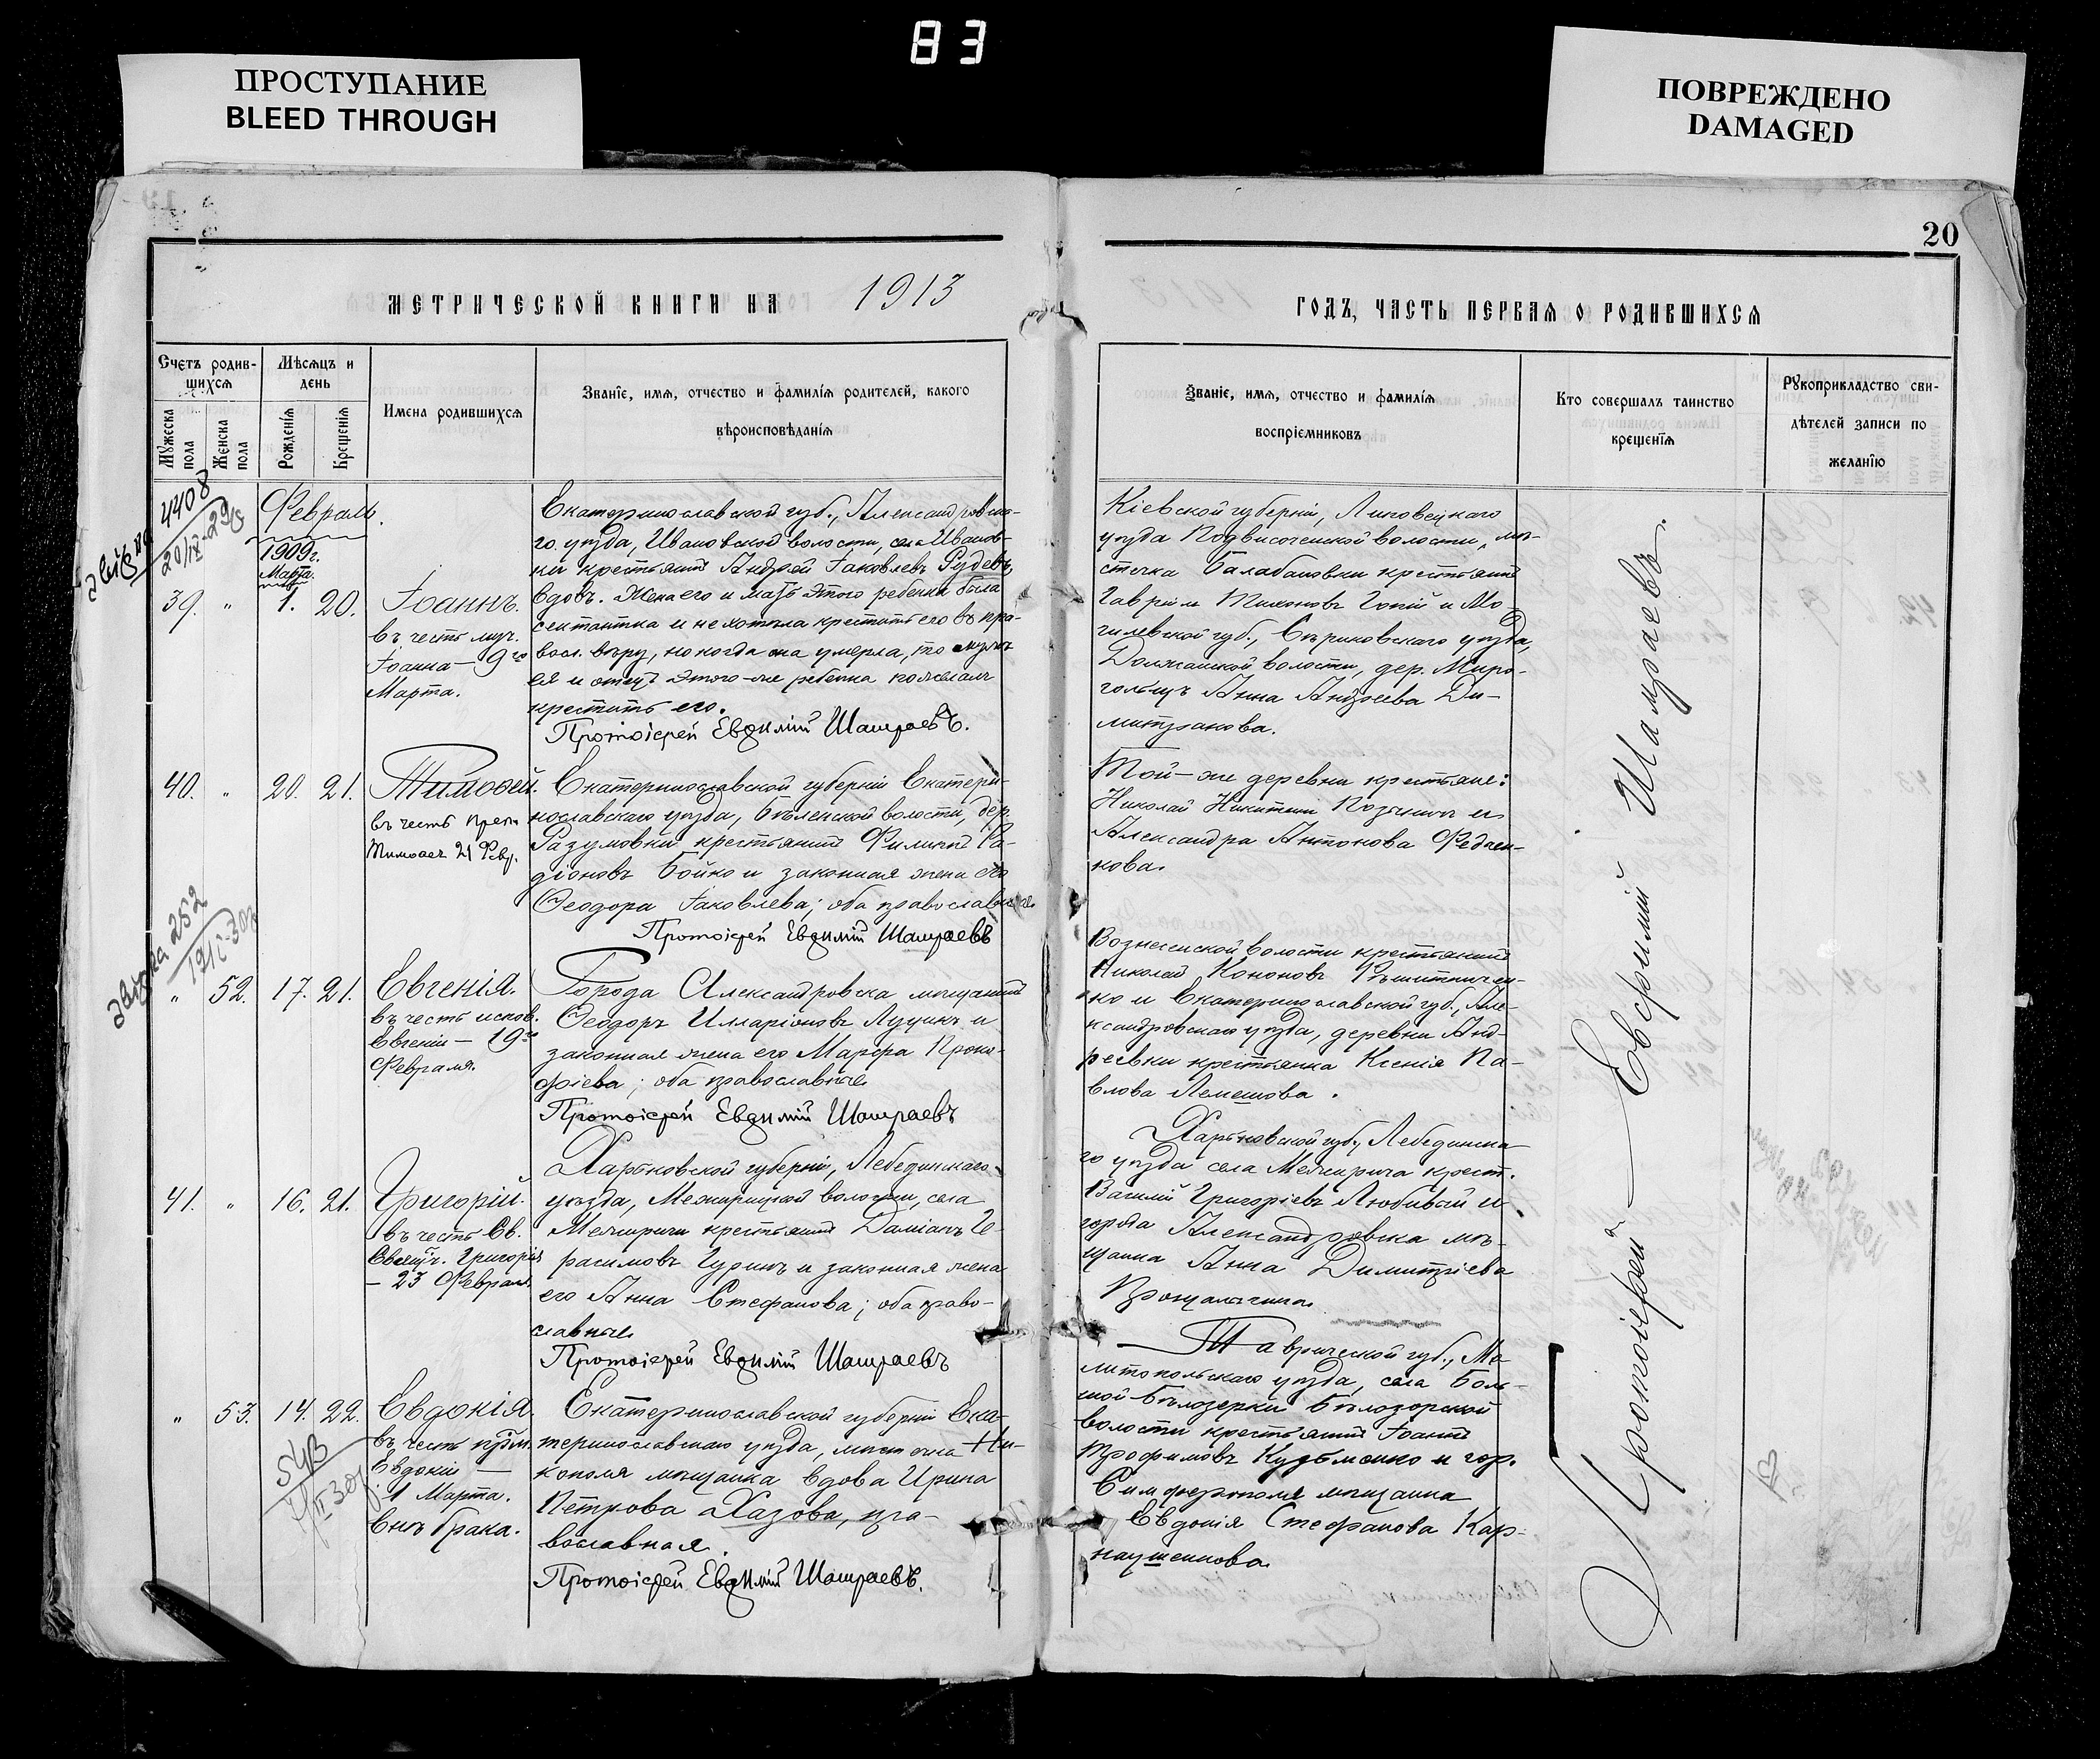 83
ПРОСТУПАНИЕ
BLEED THROUGH
ПОВРЕЖДЕНО
DAMAGED
20
МЕТРИЧЕСКОЙ КНИГИ НА 1913
ГОДЪ, ЧАСТЬ ПЕРВАЯ О РОДИВШИХСЯ
Счетъ родив-
шихся
Мѣсяцъ и
день
Мужеска
пола
Женска
пола
Рожденія
Крещенія
Имена родившихся
Званіе, имя, отчество и фамилія родителей, какого
вѣроисповѣданія
Званіе, имя, отчество и фамилія
воспріемниковъ
Кто совершалъ таинство
крещенія
Рукоприкладство сви-
дѣтелей записи по
желанію
4408
Февраль.
1909 г.
Марта.
39. " 1. 20. Іоаннъ.
въ честь муч.
Іоанна — 9го
Марта.
Екатеринославской губ., Александровска-
го уѣзда, Ивановской волости, села Иванов-
ки крестьянинъ Андрей Іаковлевъ Рудевъ,
вдовъ. Жена его и мать этого ребенка была
сектантка и не хотѣла крестить его въ пра-
восл. вѣру, но когда она умерла, то мужъ
ея и отецъ этого-же ребенка пожелалъ
крестить его.
Протоіерей Евфимій Шамраевъ.
Кіевской губерніи, Липовецкаго
уѣзда Подвысоченской волости, мѣ-
стечка Балабановки крестьянинъ
Гавріилъ Тихоновъ Гопій и Мо-
гилевской губ., Сѣриковскаго уѣзда,
Должанской волости, дер. Миро-
гольцъ Анна Андреева Ди-
митракова.
40. " 20. 21. Тимоѳей.
въ честь преп.
Тимоѳея 21 Февр.
Екатеринославской губерніи Екатери-
нославскаго уѣзда, Бѣленской волости, дер.
Разумовки крестьянинъ Филиппъ Ра-
діоновъ Бойко и законная жена его
Ѳеодора Іаковлева; оба православные
Протоіерей Евфимій Шамраевъ
Той-же деревни крестьяне:
Николай Никитинъ и
Александра Антонова Федчен-
кова.
252
" 52. 17. 21. Евгенія.
въ честь исков.
Евгеніи — 19го
Февраля.
Города Александровска мѣщанинъ
Ѳеодоръ Илларіоновъ Луцикъ и
законная жена его Марфа Проко-
фіева; оба православные
Протоіерей Евфимій Шамраевъ
Вознесенской волости крестьянинъ
Николай Кононовъ Рѣшитничен-
ко и Екатеринославской губ., Але-
ксандровскаго уѣзда, деревни Анд-
реевки крестьянка Ксенія Па-
влова Лемешова.
41. " 16. 21. Григорій.
въ честь Св.
Свящ. Григорія
— 23 Февраля.
Харьковской губерніи, Лебединскаго
уѣзда, Межирицкой волости, села
Межиричи крестьянинъ Даміанъ Ге-
расимовъ Гуринъ и законная жена
его Анна Стефанова; оба право-
славные
Протоіерей Евфимій Шамраевъ
Харьковской губ., Лебединска-
го уѣзда села Межирича крест.
Василій Григоріевъ Любивый и
города Александровска мѣ-
щанка Анна Димитріева
" 53. 14. 22. Евдокія.
въ честь прпм.
Евдокіи —
1 Марта.
Внѣ брака.
543
Екатеринославской губерніи Ека-
теринославскаго уѣзда, мѣстечка Ни-
кополя мѣщанка вдова Ирина
Петрова Хазова, пра-
вославная.
Протоіерей Евфимій Шамраевъ.
Таврической губ., Ме-
литопольскаго уѣзда, села Боль-
шой-Бѣлозерки Бѣлозерской
волости крестьянинъ Іоаннъ
Трофимовъ Кузьменко и гор.
Симферополя мѣщанка
Евдокія Стефанова Кар-
наушенкова.
Протоіерей — Евфимій Шамраевъ.